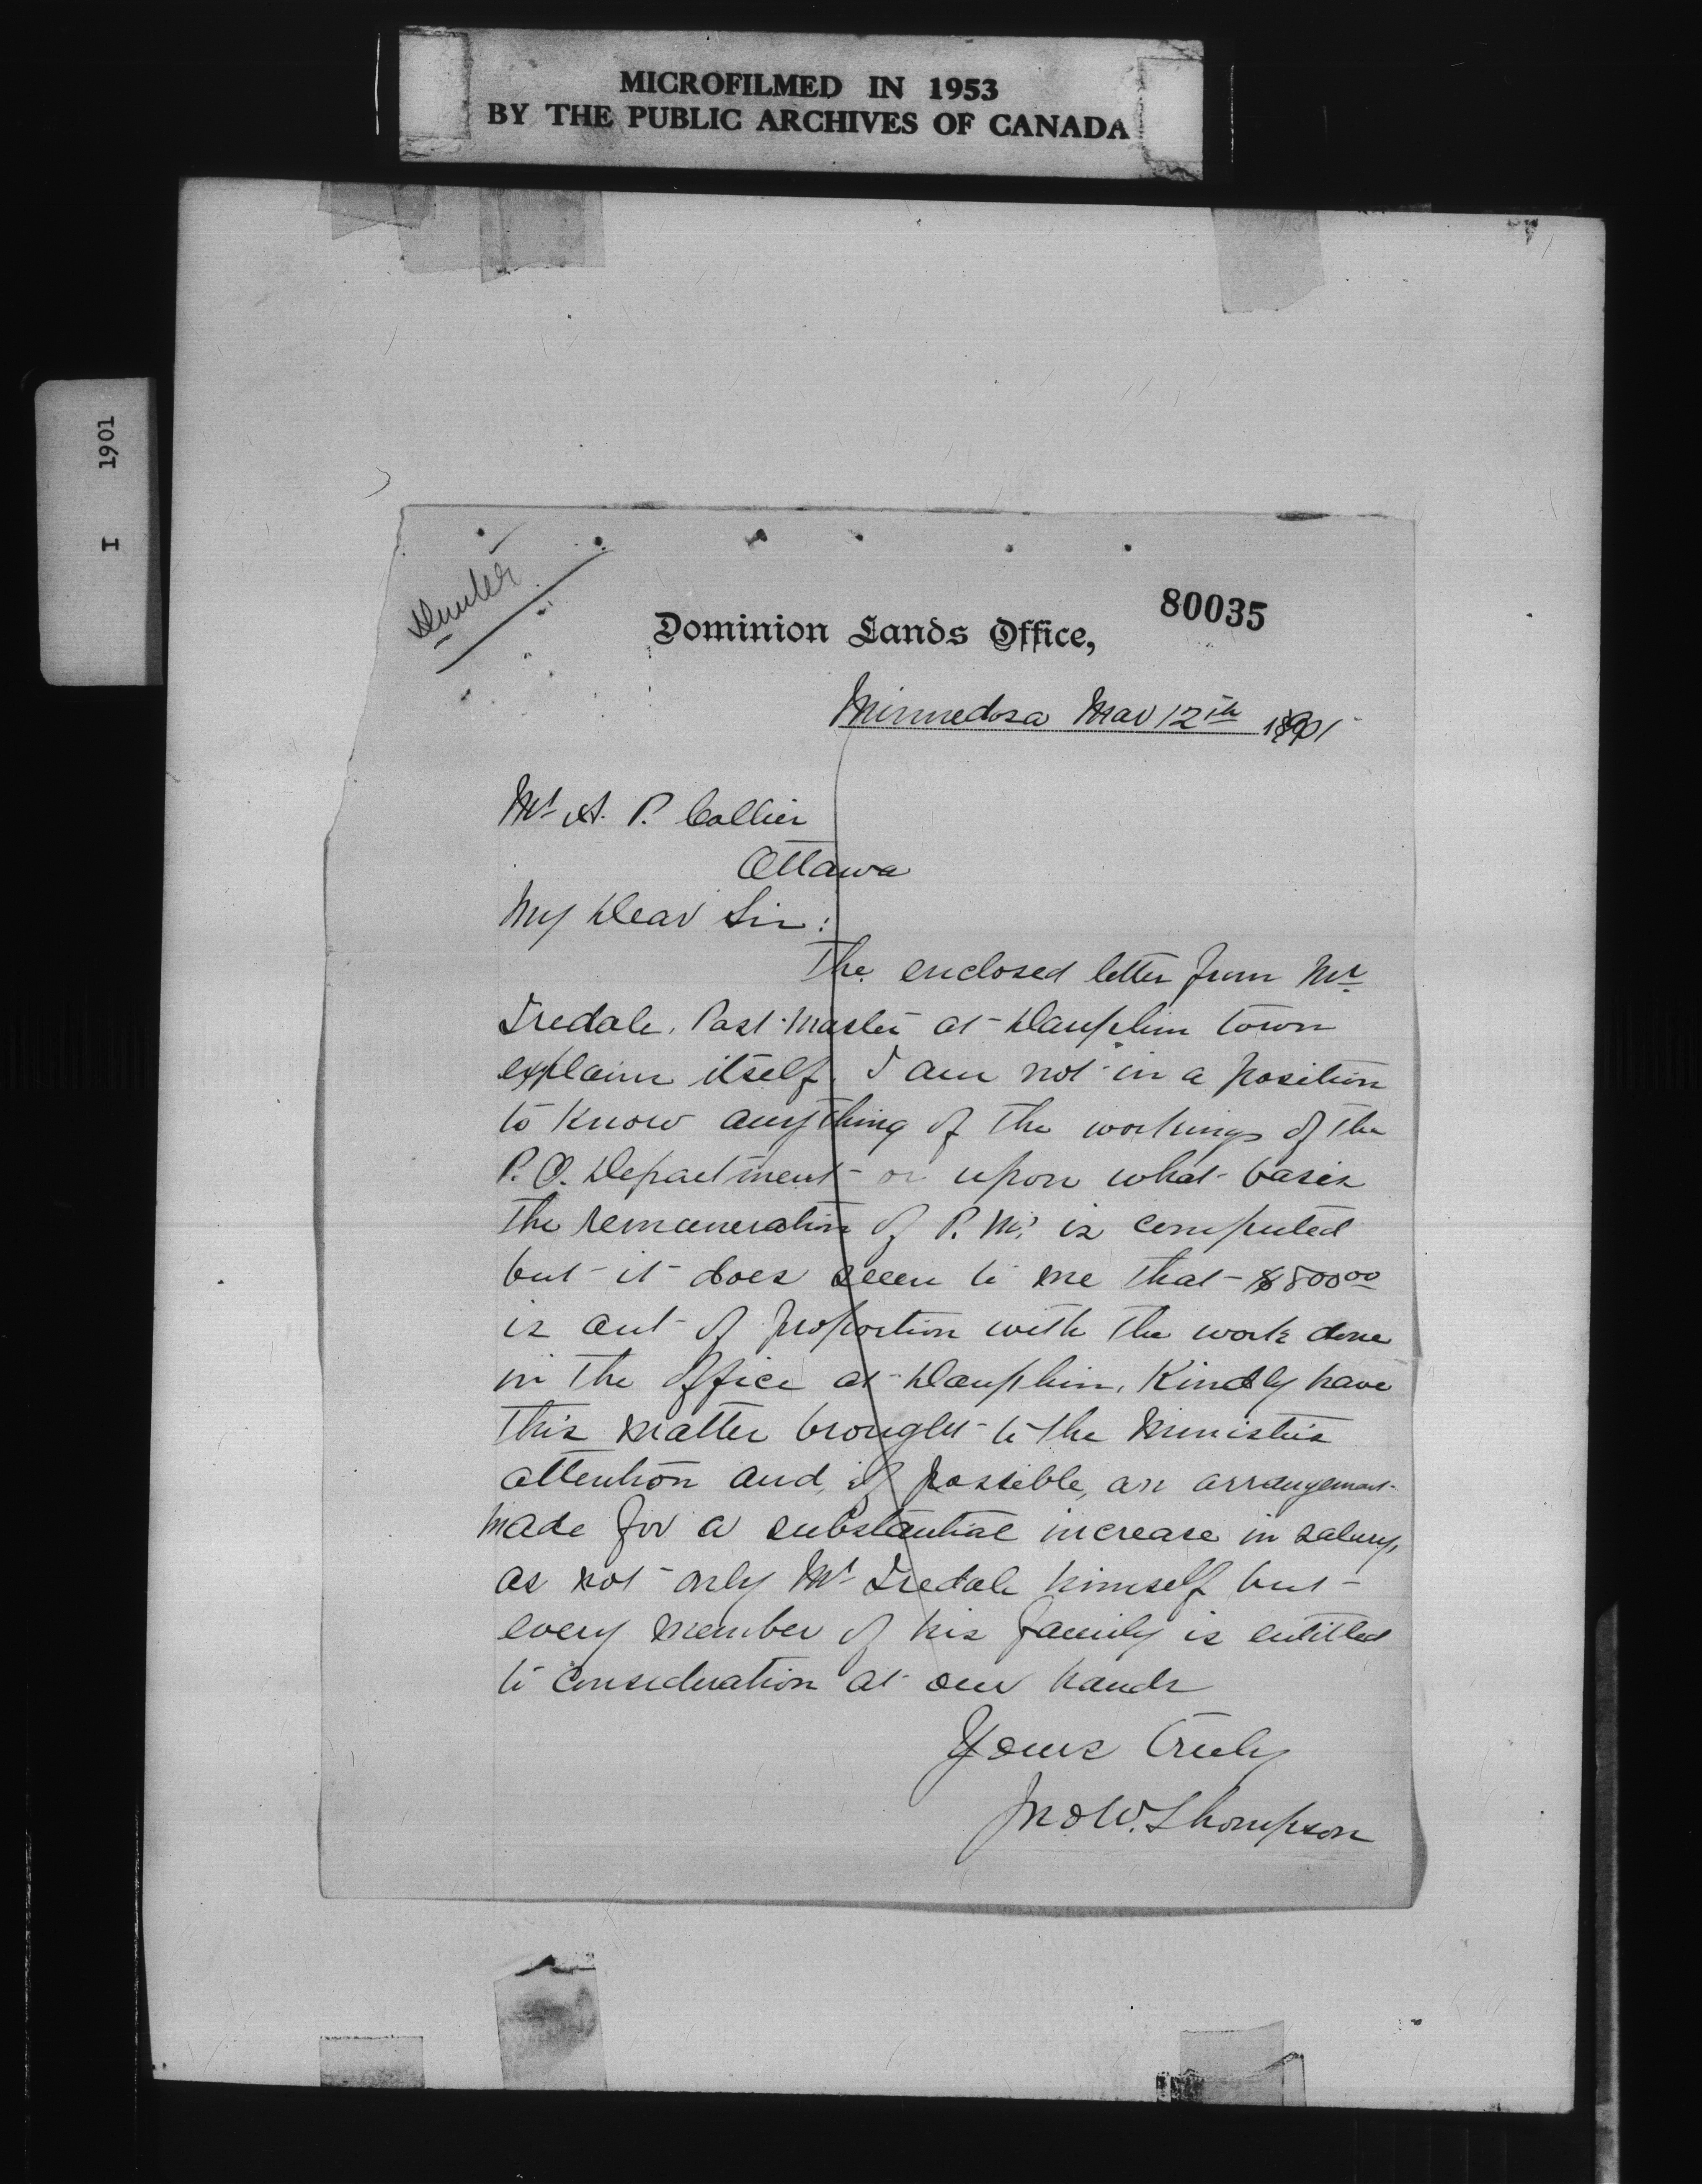 MICROFILMED IN 1953
BY THE PUBLIC ARCHIVES OF CANADA
I 1901
80035
Dominion Lands Office,
Minnedosa Mar 12th 1901
Mr A. P. Collier
Ottawa
My Dear Sir:
The enclosed letter from Mr
Iredale, Post Master at Dauphin town
explains itself. I am not in a position
to know anything of the workings of the
P. O. Department or upon what basis
the remuneration of P. M.s is computed
but it does seem to me that $800.00
is out of proportion with the work done
in the office at Dauphin. Kindly have
this matter brought to the Ministers
attention and, if possible, an arrangement
made for a substantial increase in salary,
as not only Mr Iredale himself but
every member of his family is entitled
to consideration at our hands
Yours Truly
Jno W. Thompson